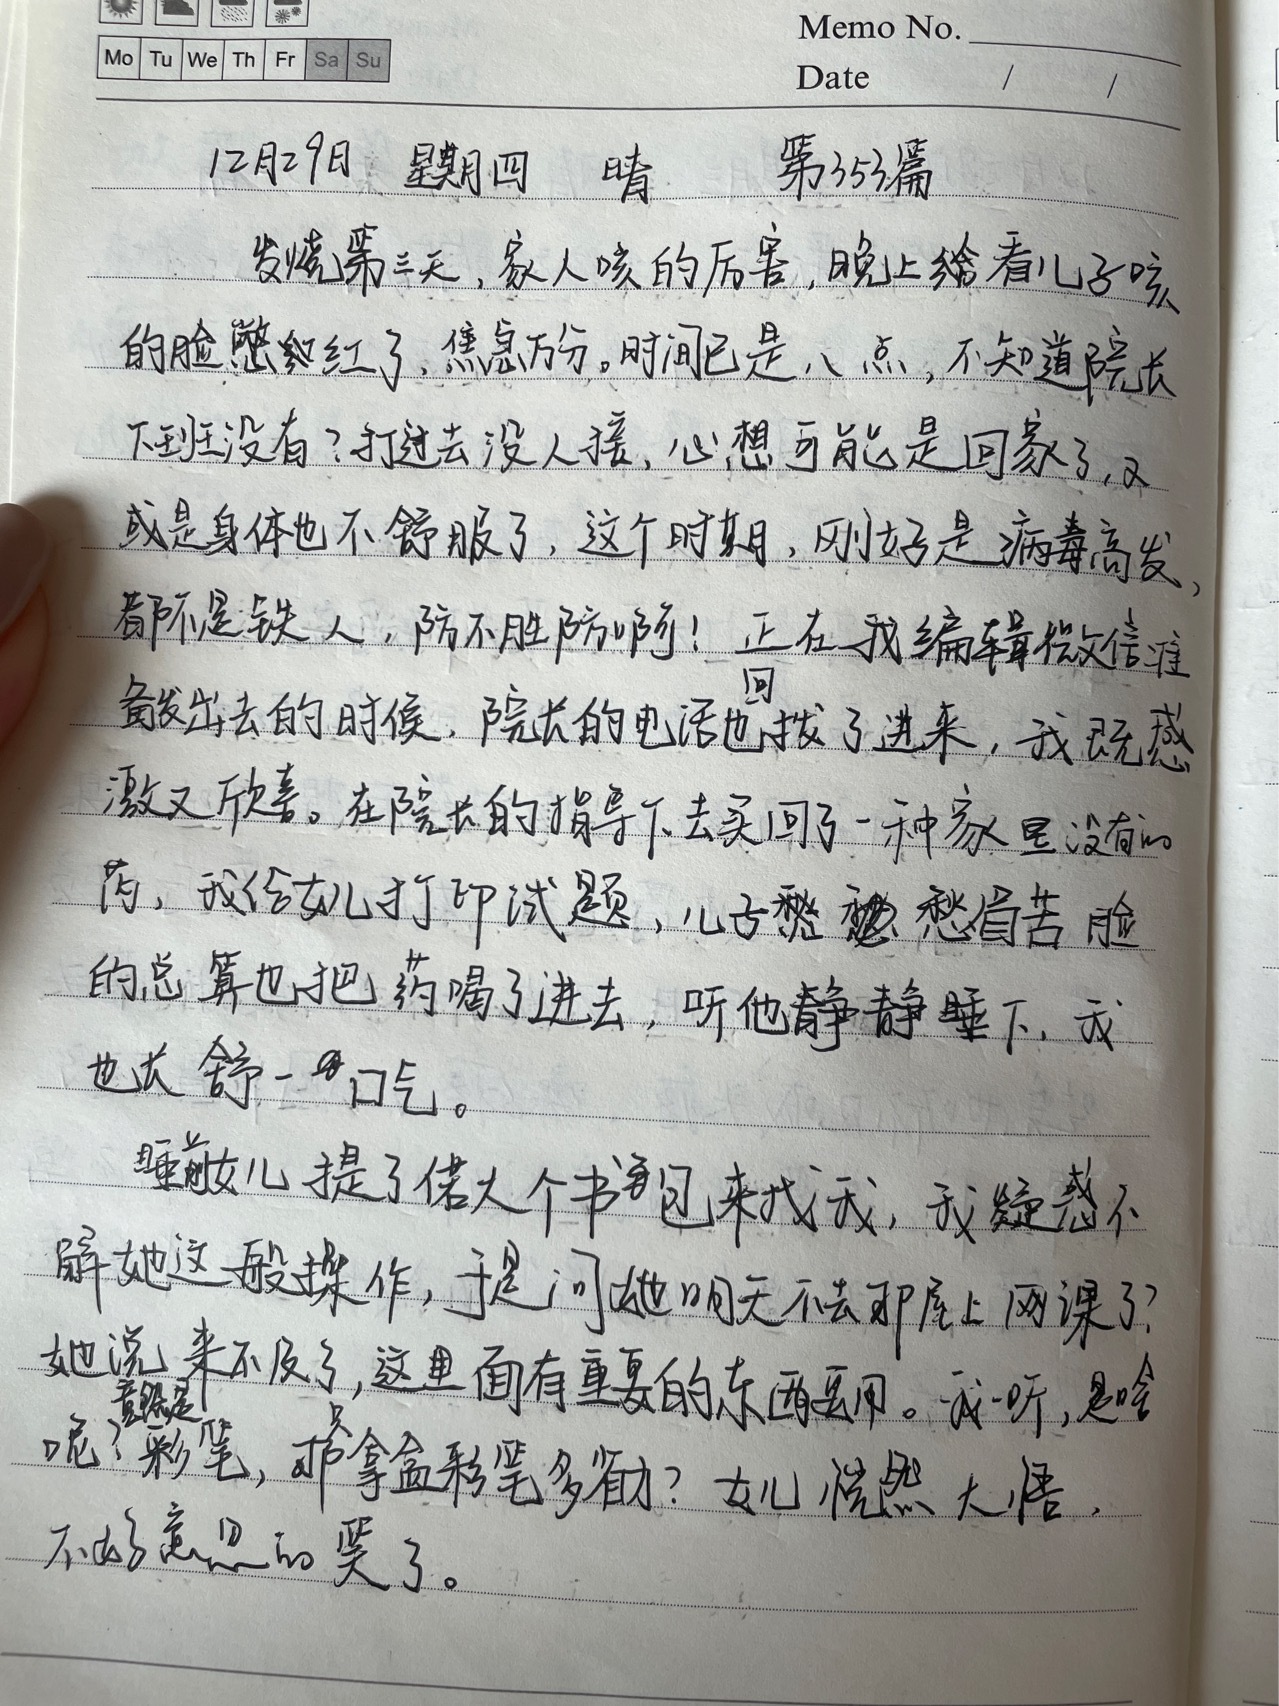 Memo No.
Mo Tu We Th Fr Sa Su
Date / /
12月29日 星期四 晴 第353篇
发烧第三天，家人咳的厉害，晚上看儿子咳
的脸憋红了，焦急万分。时间已是八点，不知道院长
下班没有？打过去没人接，心想可能是回家了，又
或是身体也不舒服了，这个时期，刚好是病毒高发，
都不是铁人，防不胜防啊！正在我编辑微信准
备发出去的时候，院长的电话也回拨了进来，我既感
激又欣喜。在院长的指导下去买回了一种家里没有的
药，我给女儿打印试题，儿子愁眉苦脸
的总算也把药喝了进去，听他静静睡下，我
也长舒一口气。
睡前女儿提了偌大个书包来找我，我疑惑不
解她这般操作，于是问她明天不去那屋上网课了？
她说来不及了，这里面有重要的东西要用。我一听，是啥
呢？竟然是彩笔，那只拿盒彩笔多省力？女儿恍然大悟，
不好意思的笑了。